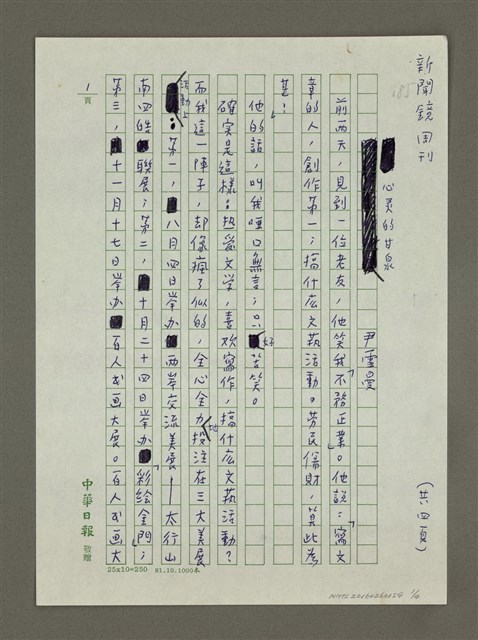 新聞鏡周刊
心灵的甘泉
尹雪曼
(共四頁)
前兩天，見到一位老友，他笑我「不務正業」。他說：「寫文
章的人，創作第一；搞什広文藝活動。勞民傷財，莫此為
甚！」
他的話，叫我啞口無言；只好苦笑。
確実是這樣。热爱文学，喜欢寫作，搞什広文藝活動？
而我這一陣子，却像瘋了似的，全心全力地投注在三大美展
活動上：第一，八月四日举办「兩岸交流美展—太行山
南四姓聯展；第二，十月二十四日举办「彩绘金門」；
第三，十一月十七日举办百人书画大展。百人书画大
1頁
中華日報 敬贈
25x10=250 81.10.1000本
1/4